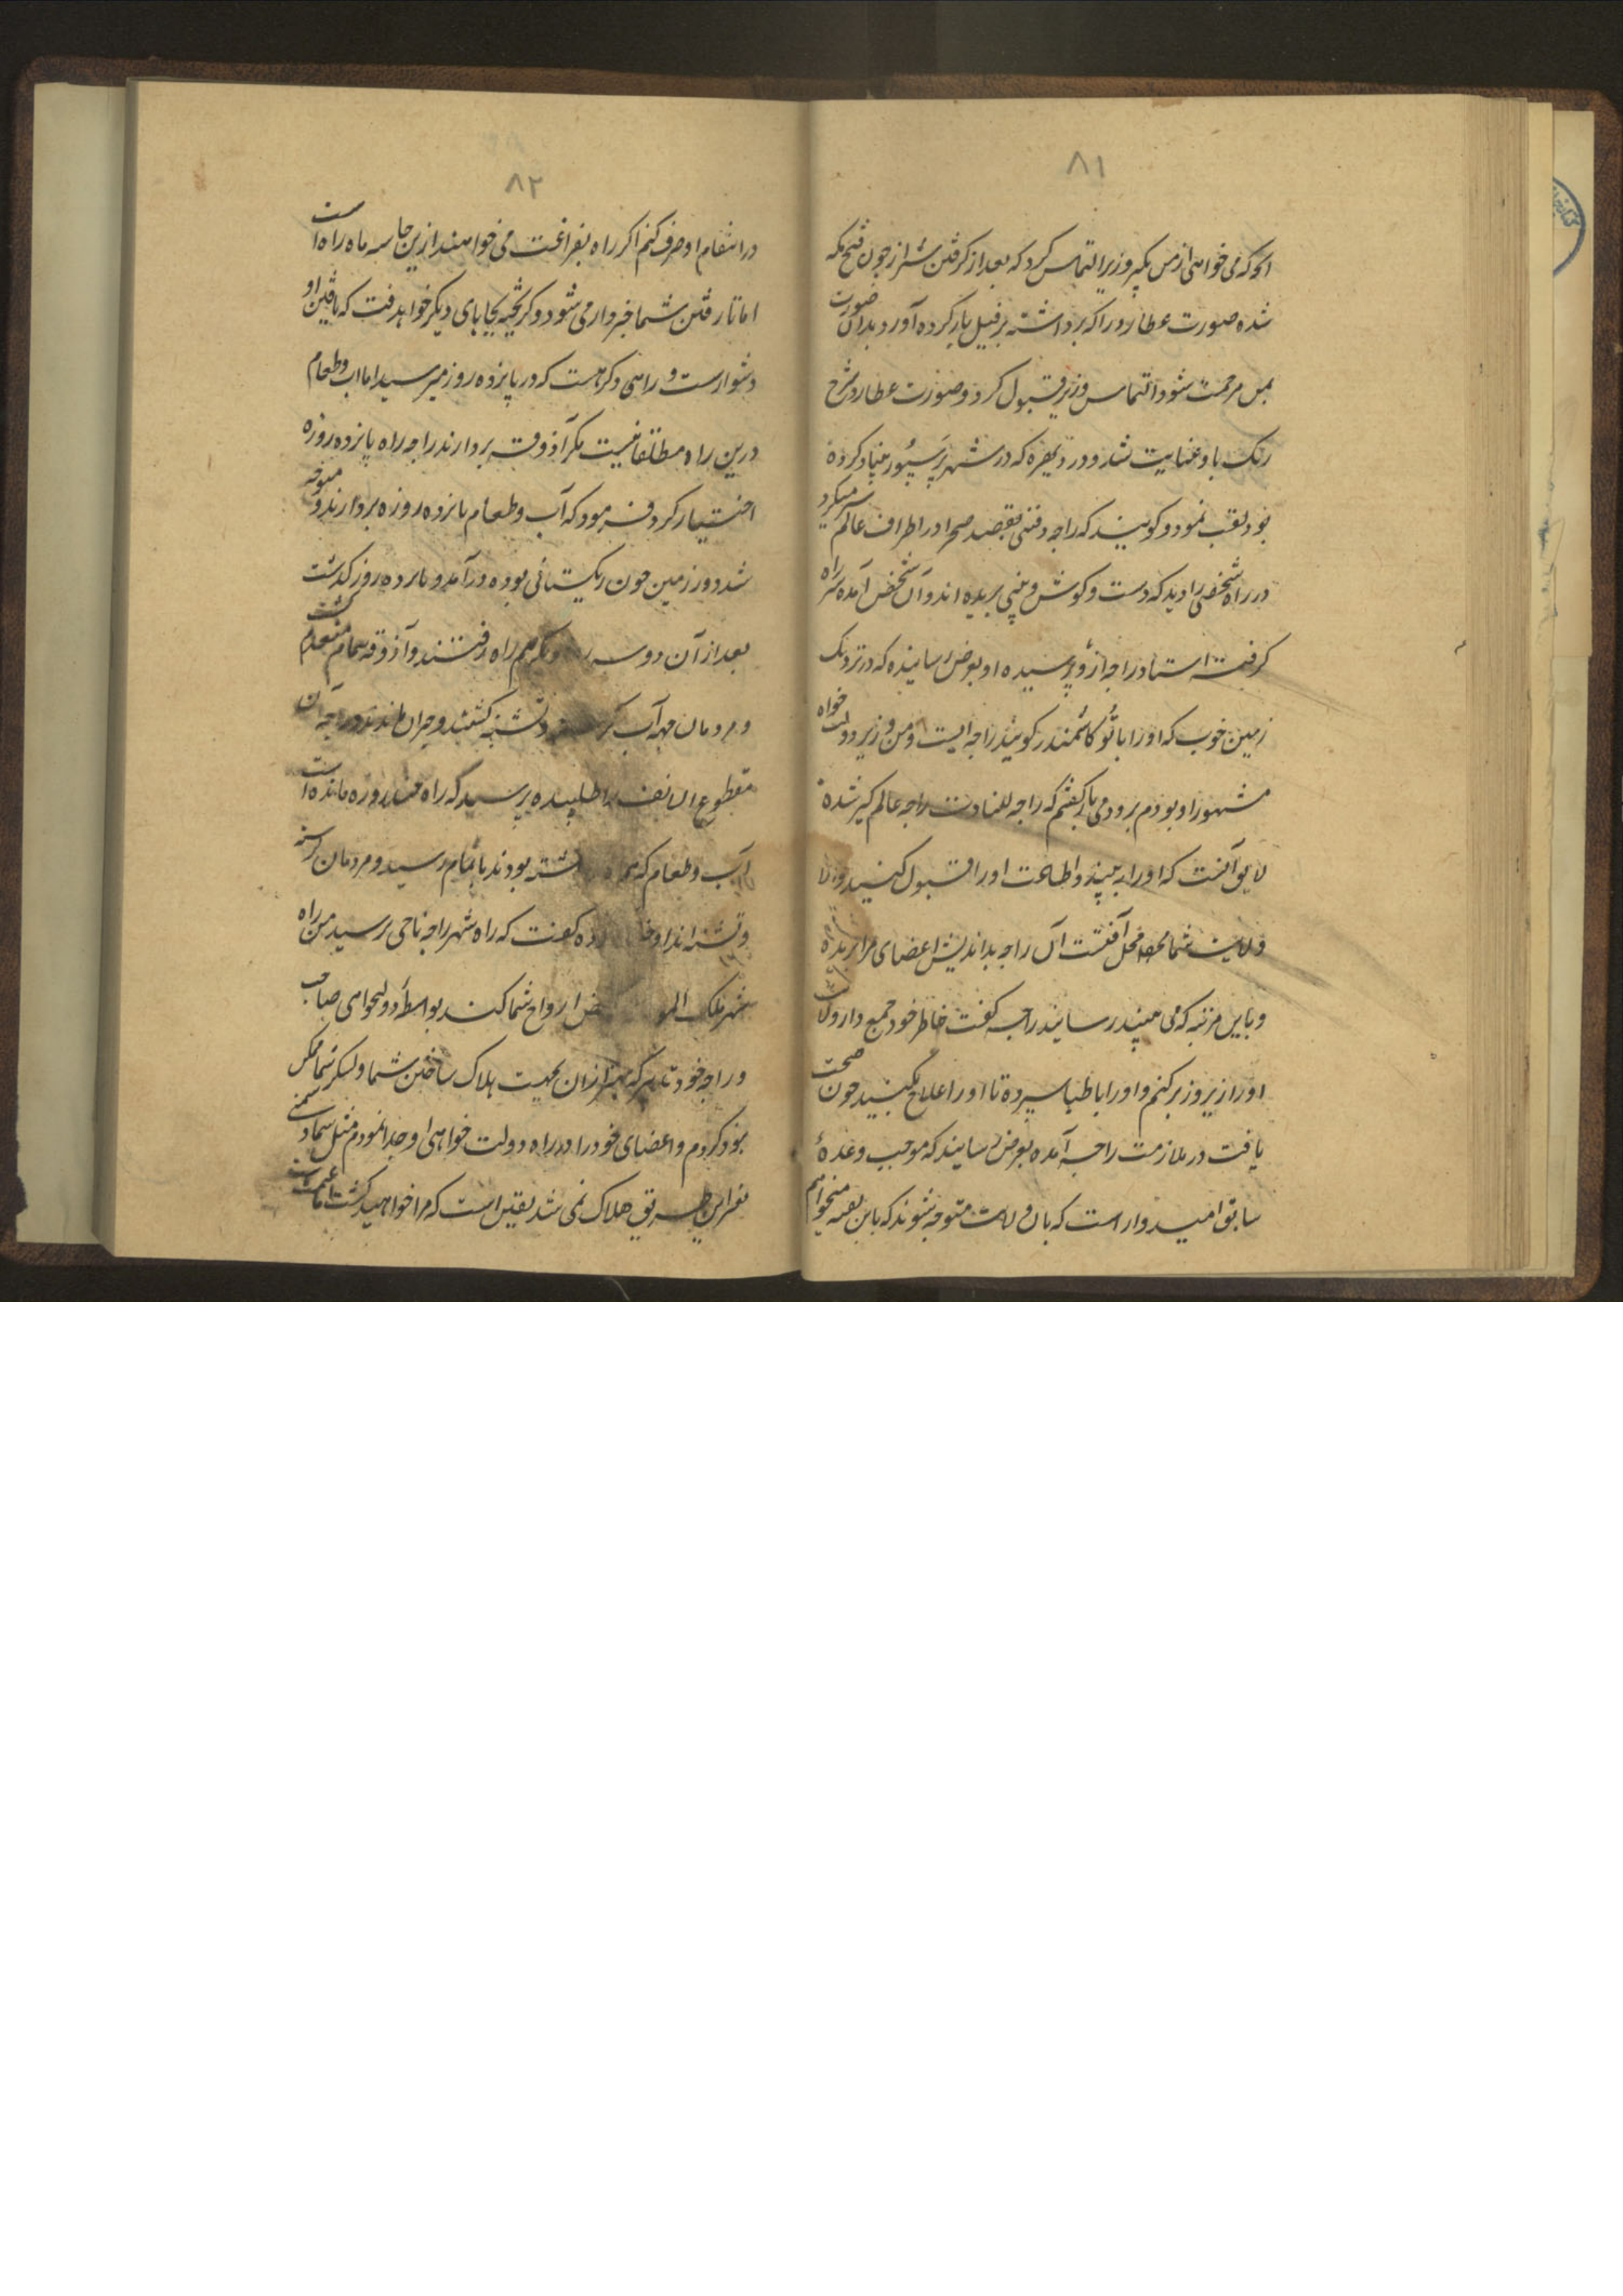 ۸۱
انچه که می خواهی از من بگیر وزیر التماس کرد که بعد از گرفتن شیراز چون فتح مکه
شده صورت عطارد را که برداشته بر فیل بار کرده آورد بدان صورت
بمن مرحمت شود التماس وزیر قبول کرد و صورت عطارد شرح
رنک باو عنایت شد و در دیهره که در شهر پرسپور بنیاد کرده
بود نصب نمود و کویند که راجه وقتی بقصد صحرا در اطراف عالم سیر میکرد
در راه شخصی را دید که دست و کوش و بینی بریده اند و آن شخص آمده سر راه
کرفته استاد راجه ازو پرسیده او بعرض رسانیده که در نزدیک
زمین خوب که او را کویند راجه ایست و من وزیر دولت خواه
مشهور او بودم برو می بار گفتم که راجه للتادت راجه عالم کیر شده
لایق آنست که او را به بیند و اطاعت او را قبول کنید والا
ولایت شما محل آفتست آن راجه بداندیش اعضای مرا بریده
و باین مرتبه که می بینید رسانید راجه کفت خاطر خود جمع دار ولایت
او را زیر و زبر کنم و او را باطبا سپرده تا او را علاج بکنید چون صحت
یافت در ملازمت راجه آمده بعرض رسانید که موجب وعدۀ
سابق امیدوار است که بان ولایت متوجه شوند که باین بقیه میخواهم
۸۲
در انتقام او صرف کنم اکر راه بفراغت می خواهند ازین جا سه ماه راه است
اما تا رفتن شما خبردار می شود و کریخته بجایهای دیکر خواهد رفت که یافتن او
دشوارست و راهی دکر هست که در پانزده روز میرسید اما آب و طعام
درین راه مطلقا نیست مکر آذوقه بردارند راجه راه پانزده روزه
اختیار کرد و فرمود که آب و طعام پانزده روزه بردارند و متوجه
شد و در زمین چون ریکستانی بوده درآمد و پانزده روز گذشت
بعد از آن دو سه دیکر هم راه رفتند و آذوقه تمام منعدم گشت
و مردمان همه آب و تشنه کشتند و حیران ماندند و راجه آن
مقطوع الانف را طلبیده پرسید که راه چند روزه مانده است
آب و طعام که همراه داشته بودند باتمام رسید و مردمان کرسنه
و تشنه اند او کفت که راه شهر راجه ناحی پرسید من راه
شهر ملک ارواح شما کند بواسطه دولتخواهی صاحب
و راجه خود تدبیر که بهتر از ان بجهت هلاک ساختن شما و لشکر شما ممکن
بود کردم و اعضای خود را در راه دولت خواهی او جدا نمودم مثل شما دشمنی
بغیر این طریق هلاک نمی شد یقین است که مرا خواهید کشت